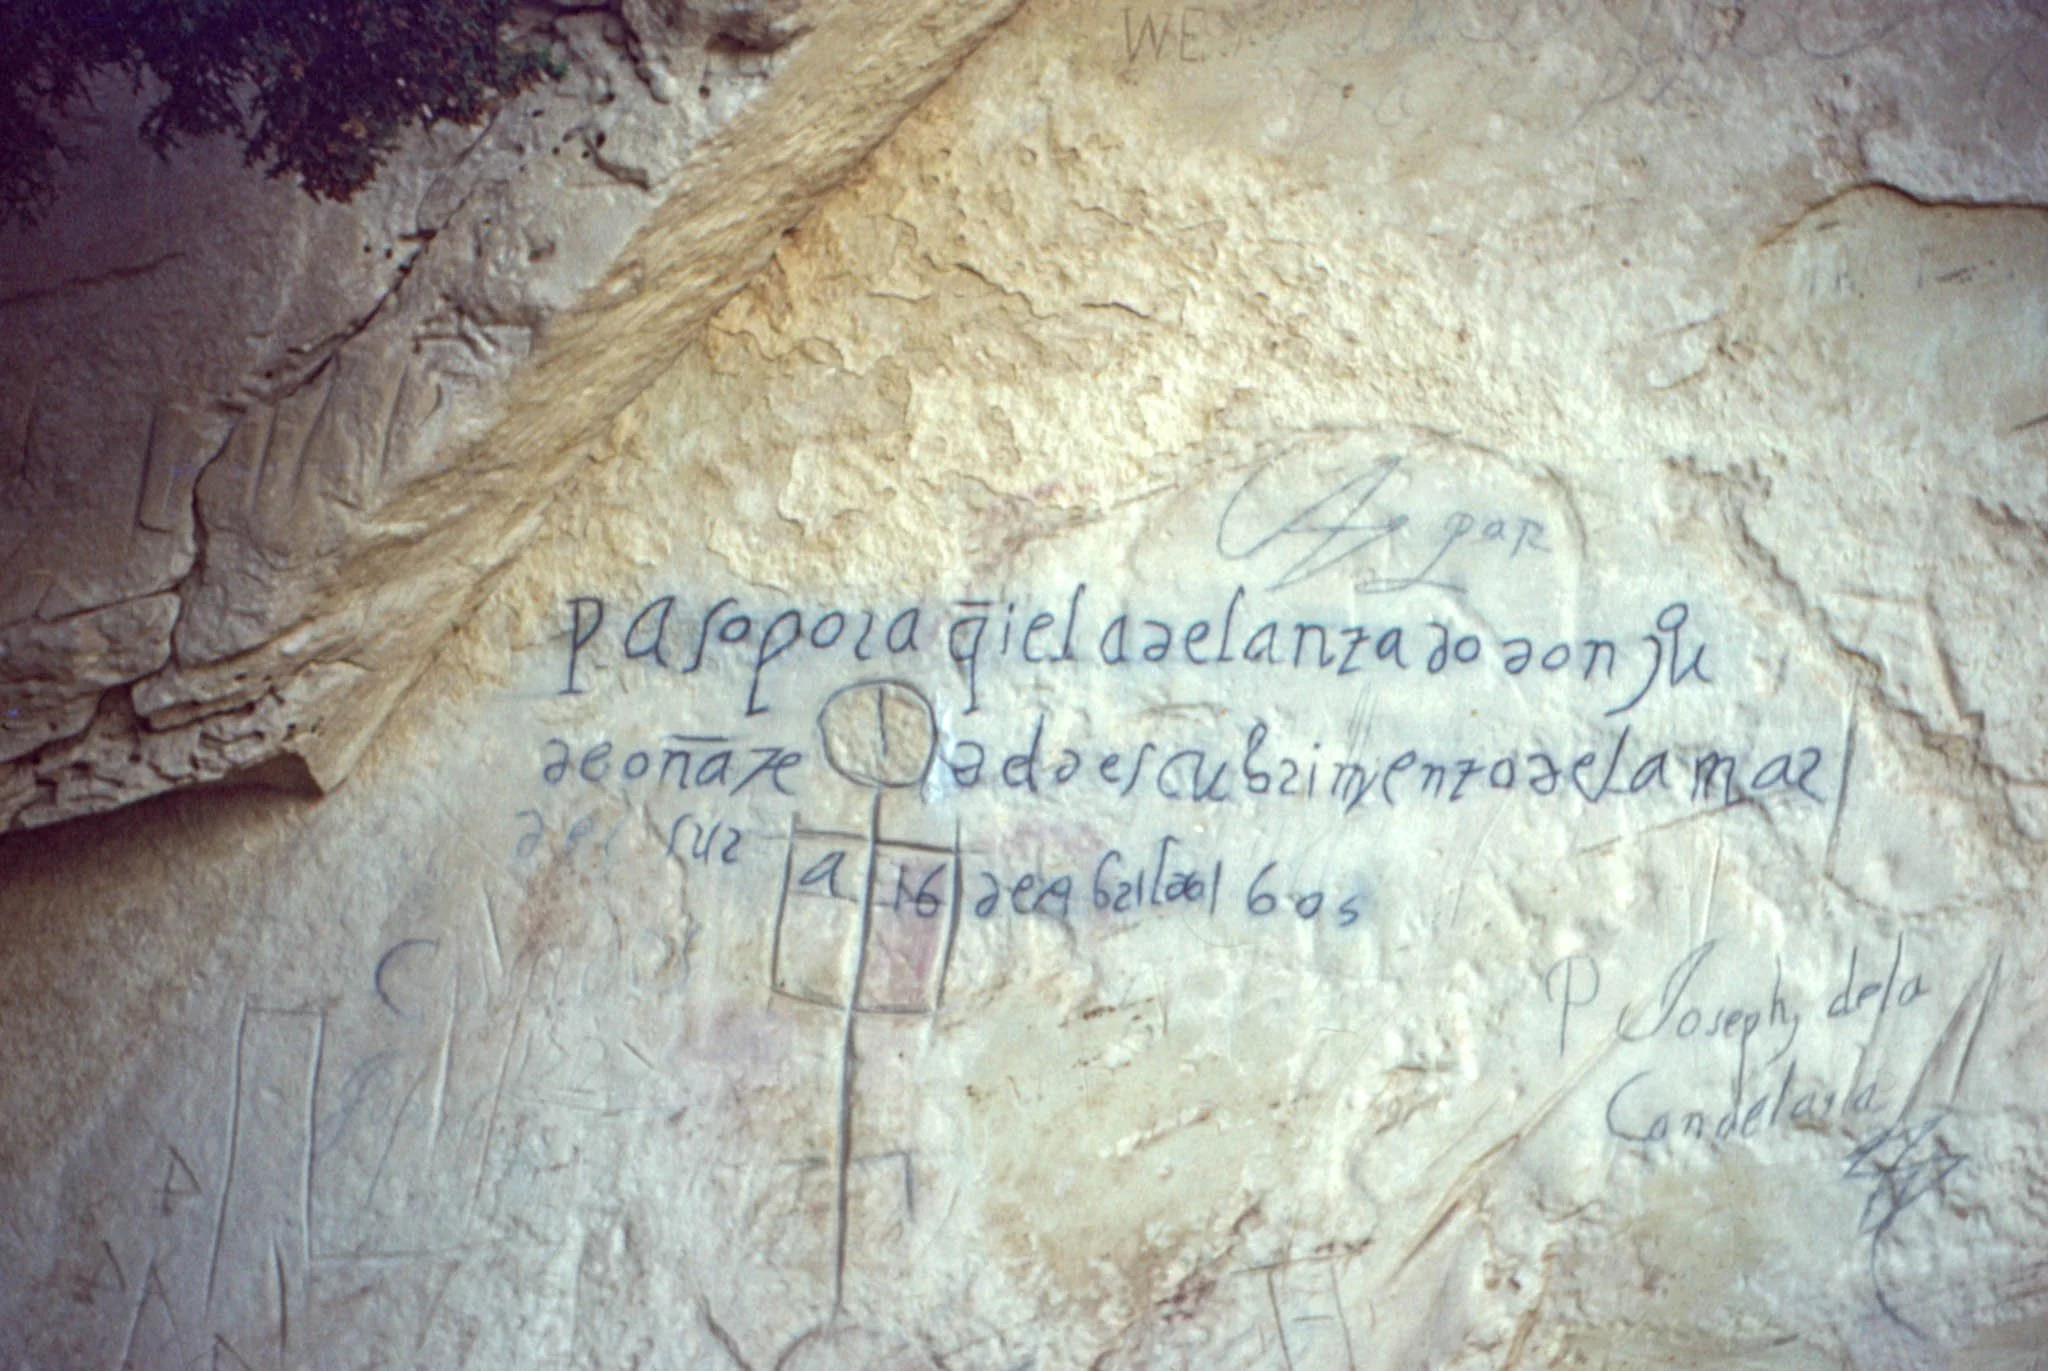 WE
pasoporaq̄ielaɗelantaɗo ɗon jũ
ɗe oñate ɗel ɗescubrimyentoɗelamar
ɗel sur a 16 ɗe abril ɗel 1605
P Joseph dela
Candelaria